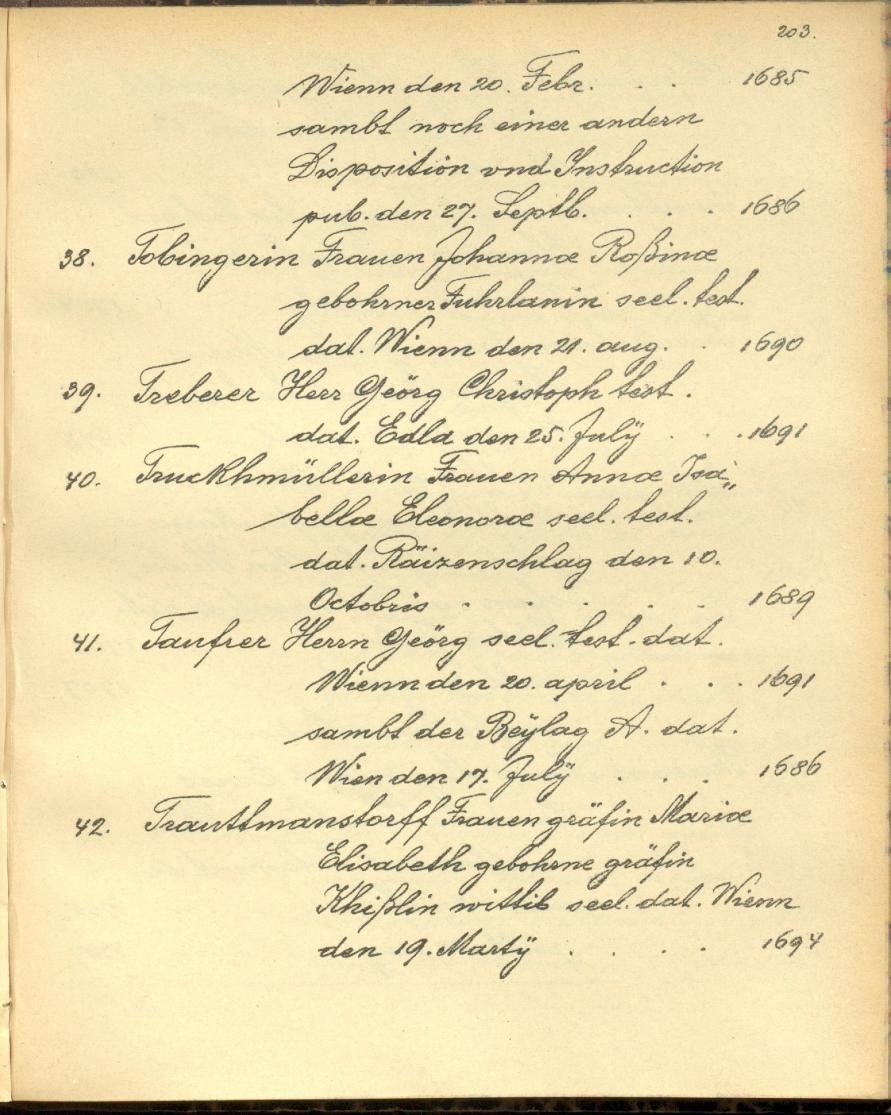 203.
Wienn den 20. Febr. . . 1685
sambt noch einer andern
Disposition vnd Instruction
pub. den 27. Septb. . . . 1686
38. Tobingerin Frauen Johannæ Roßinæ
gebohrner Fuhrlanin seel. test.
dat. Wienn den 21. aug. . 1690
39. Treberer Herr Geörg Christoph test.
dat. Edla den 25. Julÿ . . . 1691
40. Truckhmüllerin Frauen Annæ Isa„
bellæ Eleonoræ seel. test.
dat. Räizenschlag den 10.
Octobris . . . . . 1689
41. Taufrer Herrn Geörg seel. test. dat.
Wienn den 20. april . . . 1691
sambt der Beÿlag A. dat.
Wien den 17. Julÿ . . . 1686
42. Trauttmanstorff Frauen gräfin Mariæ
Elisabeth gebohrne gräfin
Khißlin wittib seel. dat. Wienn
den 19. Martÿ . . . . 1694